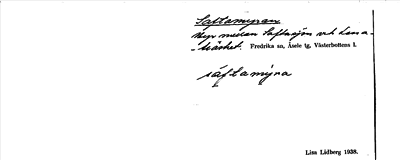 Saftamyran
Myr mellan Saftasjön och Lena-
-träsket. Fredrika sn, Åsele tg, Västerbottens l.
säftamýra
Lisa Lidberg 1938.